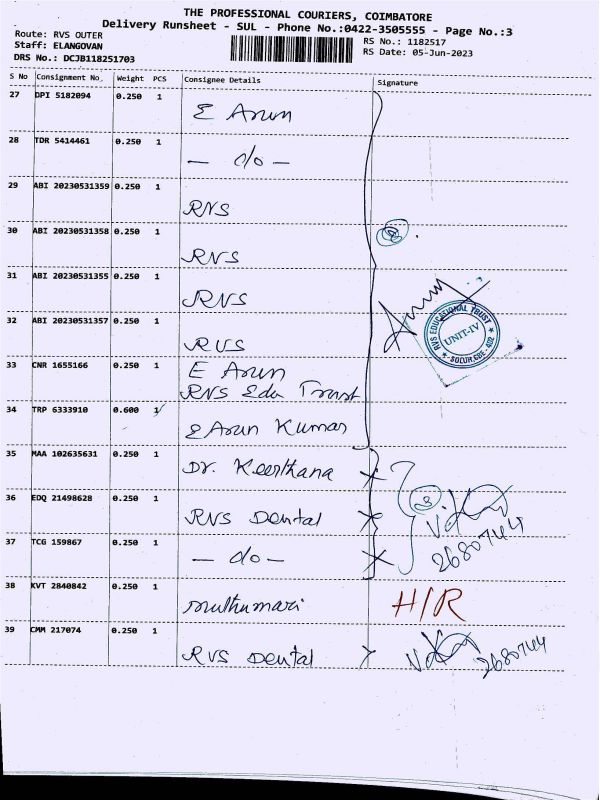 THE PROFESSIONAL COURIERS, COIMBATORE
Delivery Runsheet - SUL - Phone No.:0422-3505555 - Page No.:3
Route: RVS OUTER
Staff: ELANGOVAN
DRS No.: DCJB118251703
RS No.: 1182517
RS Date: 05-Jun-2023
S No Consignment No. Weight PCS Consignee Details Signature
27 DPI 5182094 0.250 1 E Arun
28 TDR 5414461 0.250 1 - do -
29 ABI 20230531359 0.250 1 RVS
30 ABI 20230531358 0.250 1 RVS
31 ABI 20230531355 0.250 1 RVS
32 ABI 20230531357 0.250 1 RVS
RVS EDUCATIONAL TRUST
UNIT-IV
SULUR, CBE - 402
33 CNR 1655166 0.250 1 E Arun
RVS Edu Trust
34 TRP 6333910 0.600 1 E Arun Kumar
35 MAA 102635631 0.250 1 Dr. Keerthana
36 EDQ 21498628 0.250 1 RVS Dental 3
2680744
37 TCG 159867 0.250 1 - do -
38 KVT 2840842 0.250 1 muthumari H/R
39 CMM 217074 0.250 1 RVS Dental 2680744